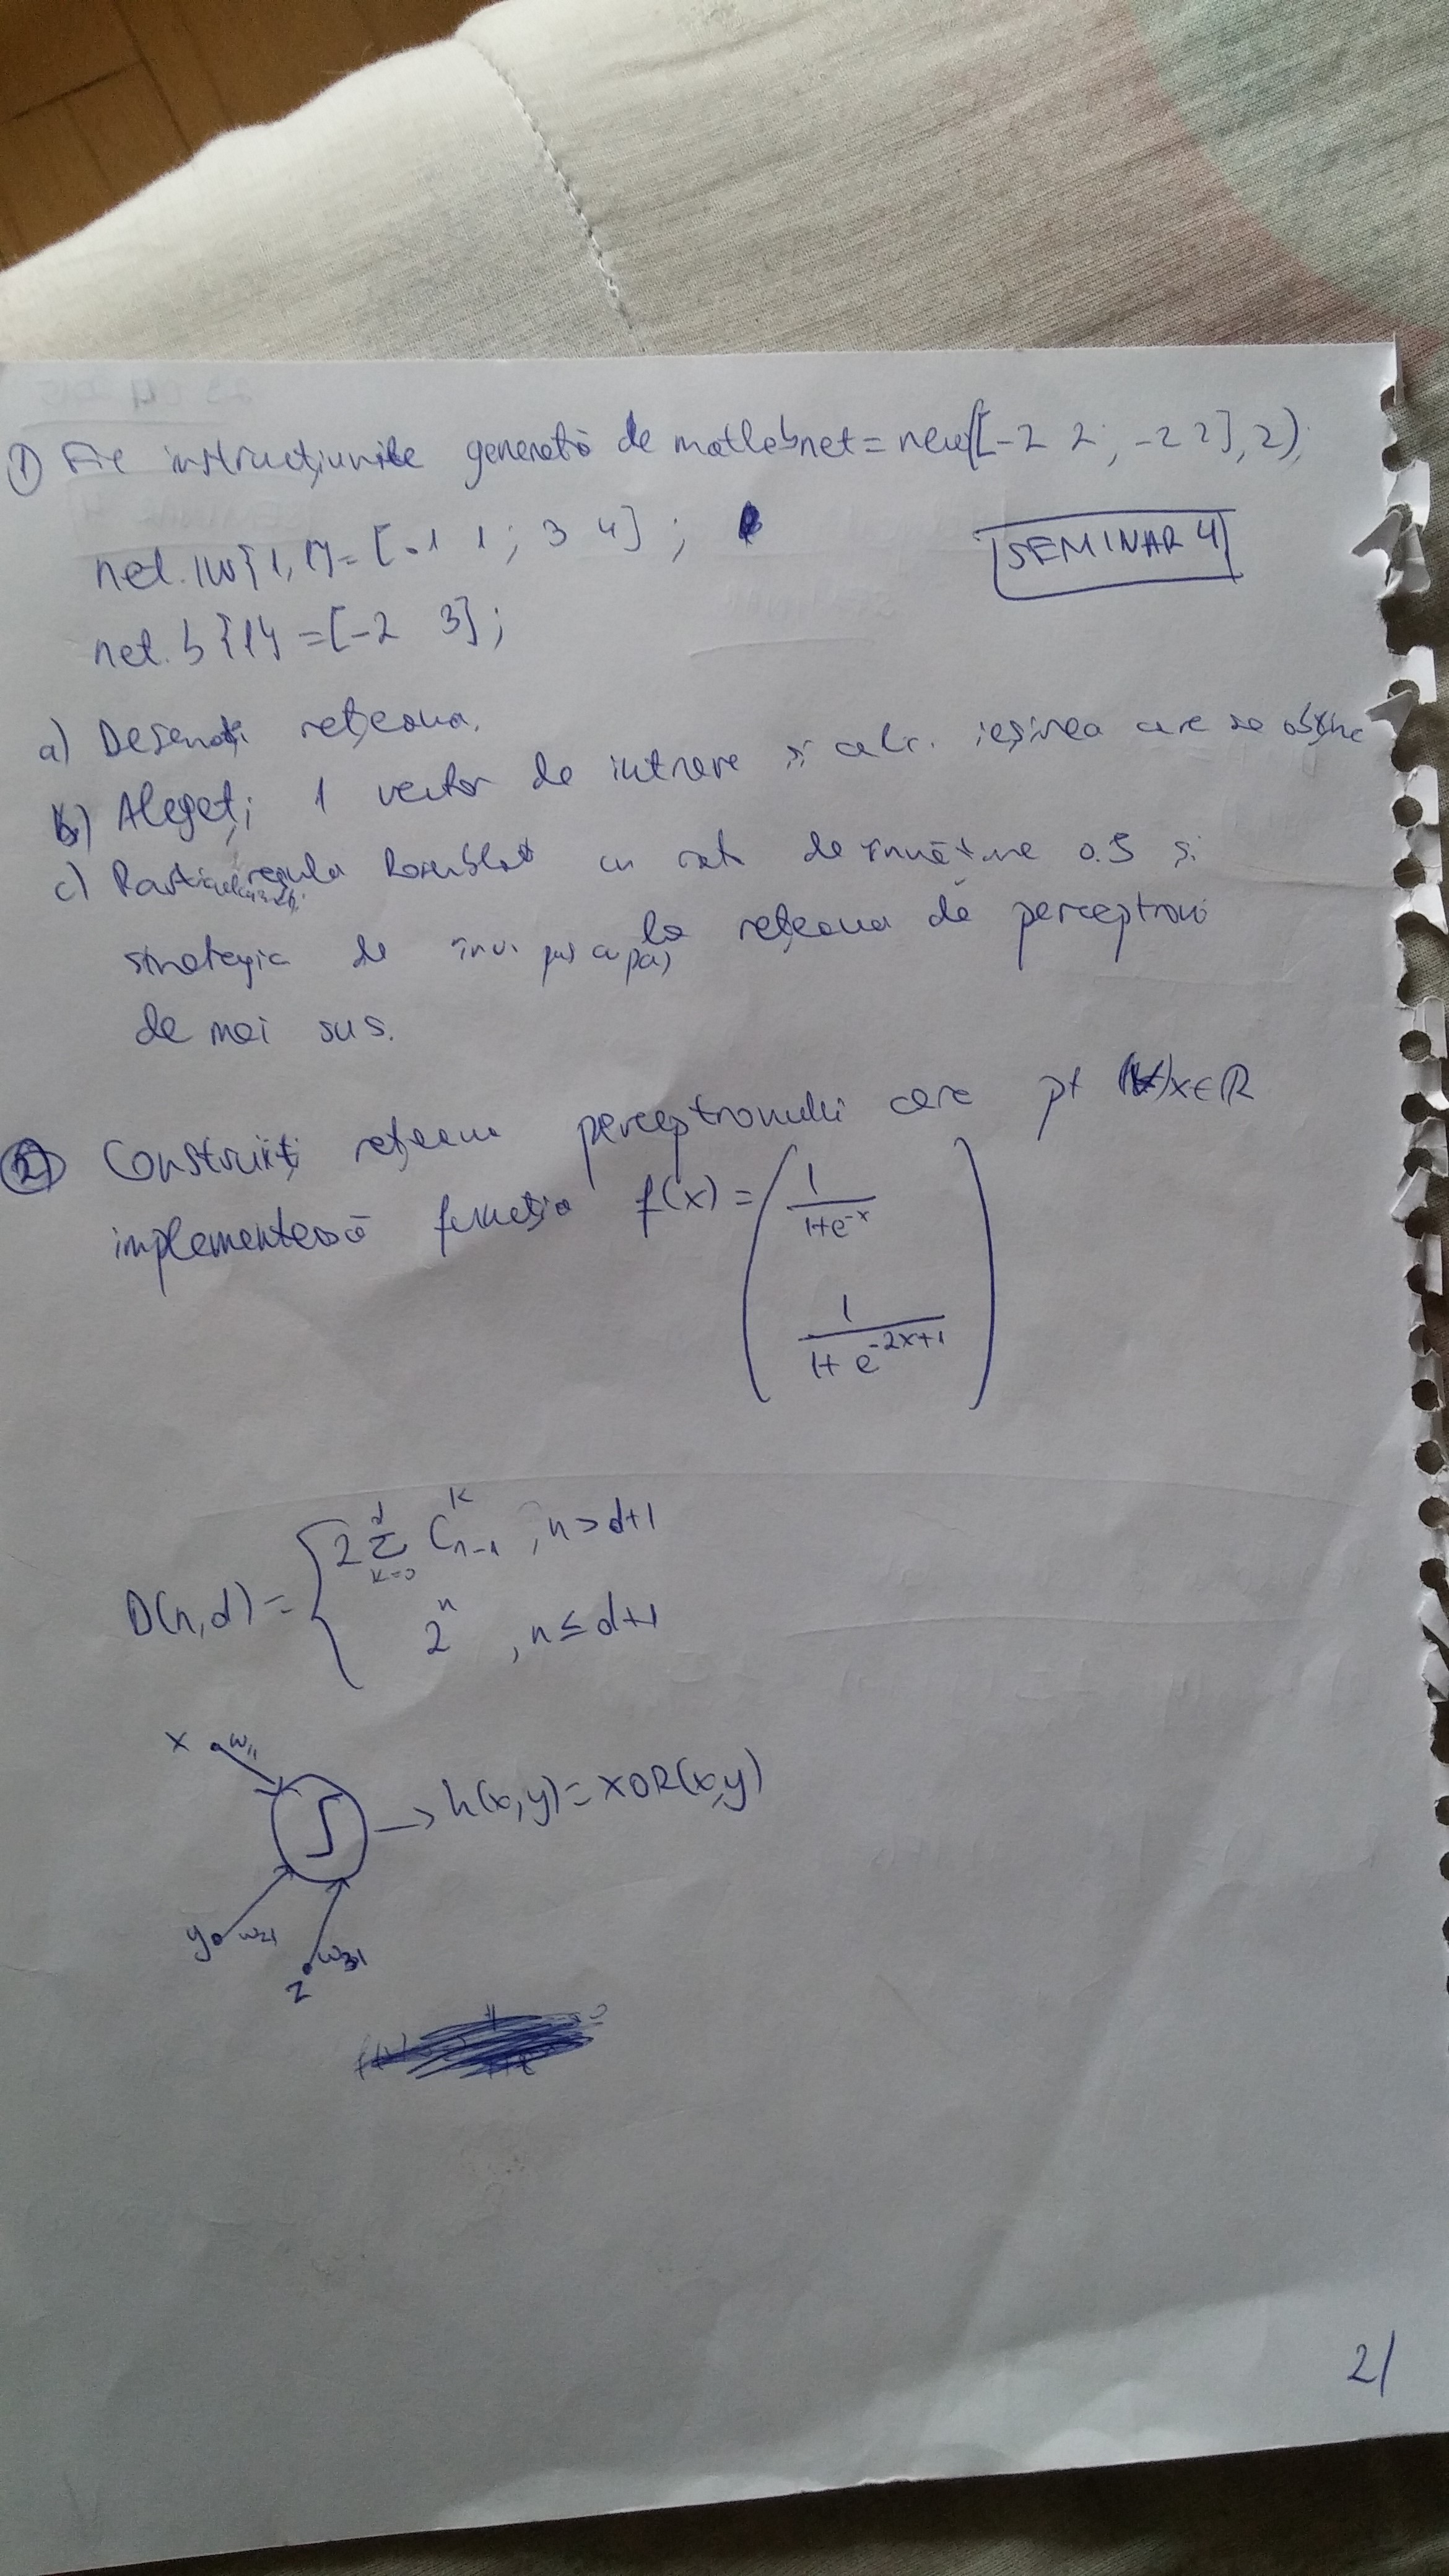 ① Fie instrucțiunile generată de matlab net = newp([-2 2 ; -2 2], 2);
net.IW{1,1} = [.1 1 ; 3 4] ;
SEMINAR 4
net.b{1} = [-2 3];
a) Desenați rețeaua.
b) Alegeți 1 vector de intrare și calc. ieșirea care se obține
c) Particularizați regula Rosenblat cu rata de învățare 0.5 și
strategia de înv. pas cu pas la rețeaua de perceptroni
de mai sus.
② Construiți rețeaua perceptronului care pt (∀)x∈ℝ
implementează funcția f(x) = ( 1/(1+e^-x)
1/(1+e^-2x+1) )
D(n,d) = { 2 Σ_{k=0}^{d} C_{n-1}^{k} , n>d+1
2^n , n ≤ d+1
x w11
→ h(x,y) = XOR(x,y)
y w21
z w31
2/